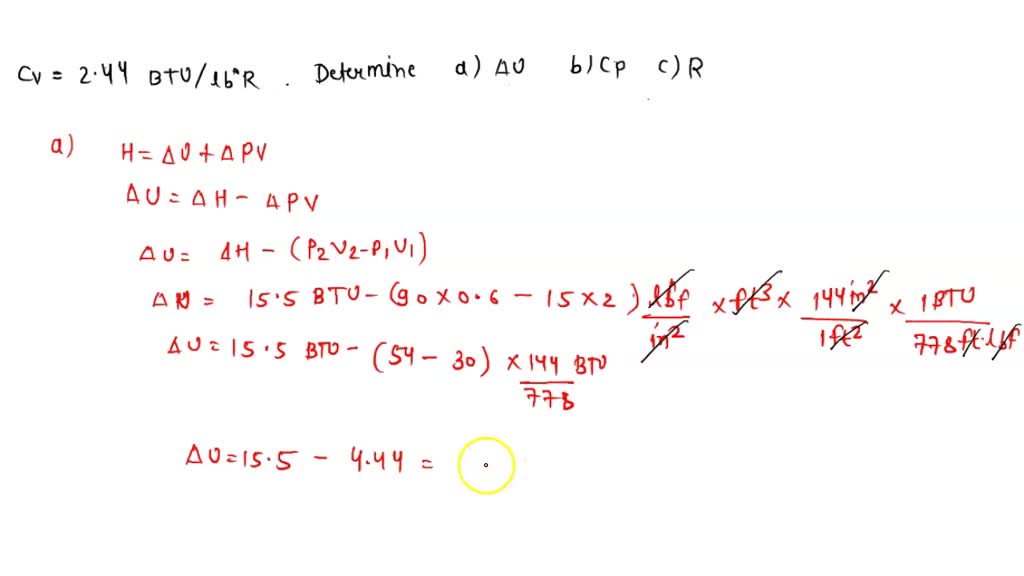 Cv = 2.44 BTU/lb°R. Determine a) ΔU b) Cp c) R
a) H = ΔU + ΔPV
ΔU = ΔH - ΔPV
ΔU = ΔH - (P2V2-P1V1)
ΔU = 15.5 BTU - (90 x 0.6 - 15 x 2) lbf/in² x ft³ x 144in²/1ft² x 1BTU/778ft.lbf
ΔU = 15.5 BTU - (54 - 30) x 144 BTU/778
ΔU = 15.5 - 4.44 =